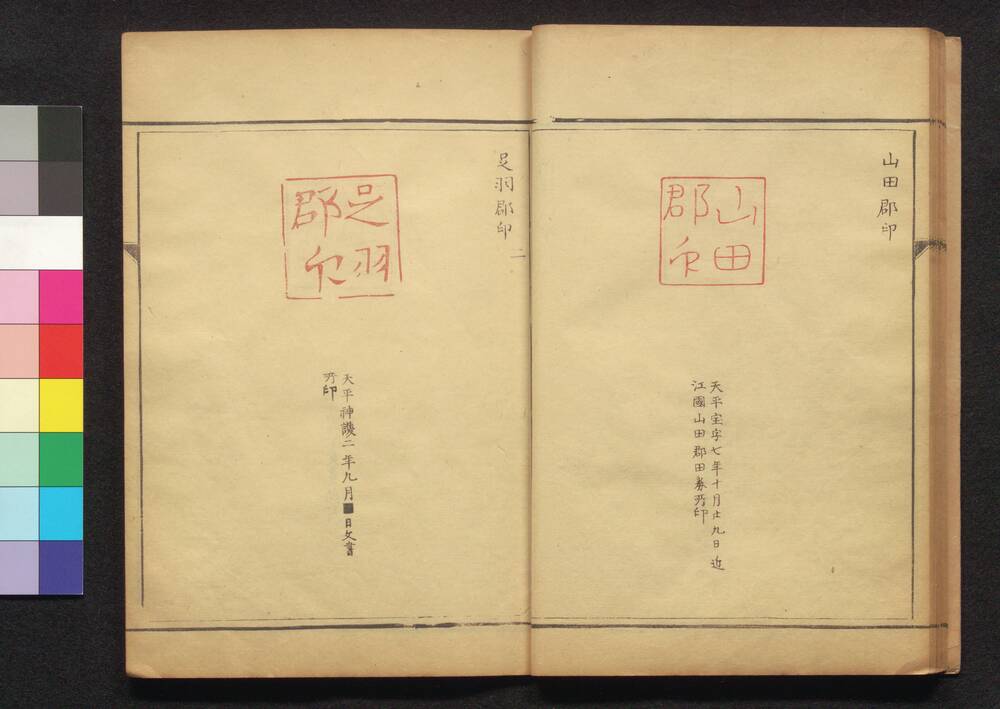 山田郡印
山田
郡印
天平宝字七年十月廿九日近
江國山田郡田券所印
足羽郡印
二
足羽
郡印
天平神護二年九月■日文書
所印